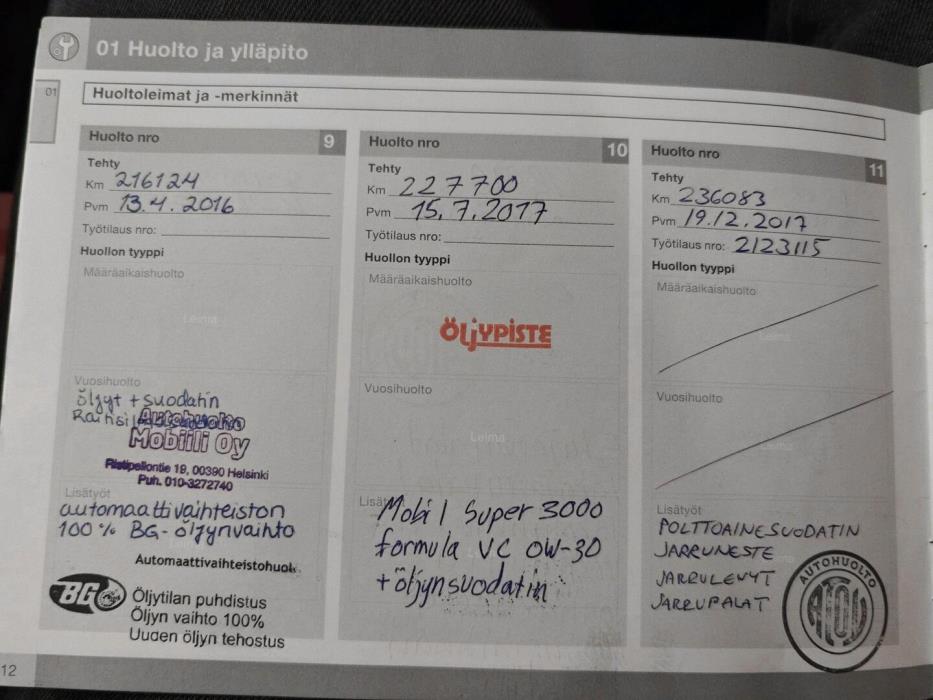 01 Huolto ja ylläpito
01
Huoltoleimat ja -merkinnät
Huolto nro 9
Tehty
Km 216124
Pvm 13.4.2016
Työtilaus nro:
Huollon tyyppi
Määräaikaishuolto
Leima
Vuosihuolto
öljyt + suodatin
Autohuolto
Mobiili Oy
Ristipellontie 19, 00390 Helsinki
Puh. 010-3272740
Lisätyöt
automaattivaihteiston
100% BG-öljynvaihto
Automaattivaihteistohuolto
BG
Öljytilan puhdistus
Öljyn vaihto 100%
Uuden öljyn tehostus
12
Huolto nro 10
Tehty
Km 227700
Pvm 15.7.2017
Työtilaus nro:
Huollon tyyppi
Määräaikaishuolto
ÖLJYPISTE
Vuosihuolto
Leima
Lisät
Mobil Super 3000
formula VC 0W-30
+ öljynsuodatin
Huolto nro 11
Tehty
Km 236083
Pvm 19.12.2017
Työtilaus nro: 2123115
Huollon tyyppi
Määräaikaishuolto
Leima
Vuosihuolto
Leima
Lisätyöt
POLTTOAINESUODATIN
JARRUNESTE
JARRULEVYT
JARRUPALAT
AUTOHUOLTO